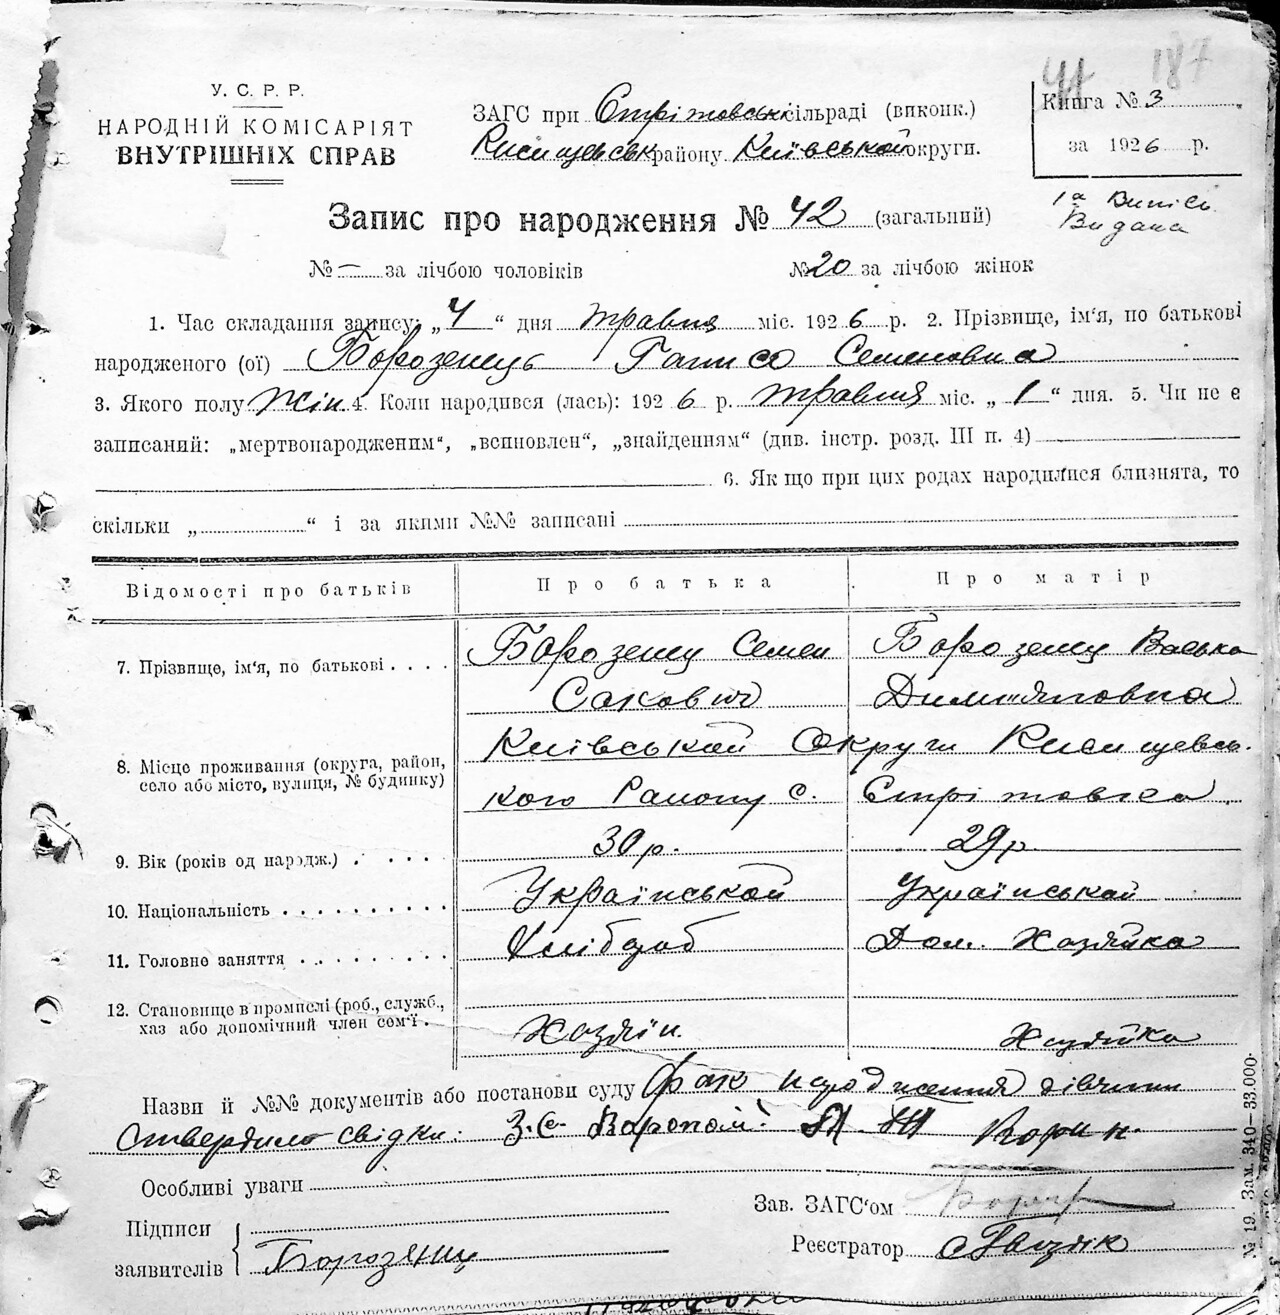 187
У. С. Р. Р.
НАРОДНІЙ КОМІСАРІЯТ
ВНУТРІШНІХ СПРАВ
ЗАГС при Стрітовськ сільраді (виконк.)
району Київськой округи.
Книга № 3
за 1926 р.
1а Випісь
Видана
Запис про народження № 42 (загальний)
№ — за лічбою чоловіків № 20 за лічбою жінок
1. Час складання запису: „4“ дня травня міс. 1926 р. 2. Прізвище, ім'я, по батькові
народженого (ої) Борозенець Ганна Семеновна
3. Якого полу Жін. 4. Коли народився (лась): 1926 р. травня міс. „1“ дня. 5. Чи не є
записаний: „мертвонародженим“, „вспновлен“, „знайденням“ (див. інстр. розд. III п. 4)
6. Як що при цих родах народилися близнята, то
скільки „ “ і за якими №№ записані
Відомості про батьків Про батька Про матір
7. Прізвище, ім'я, по батькові . . . . Борозенец Семен Борозенец
Сакович
8. Місце проживання (округа, район, Київськой Округи
село або місто, вулиця, № будинку) кого Району с. Стрітовка
9. Вік (років од нарадж.) . . . . . 30 р. 29 р.
10. Національність . . . . . . . . . Українськой Українськой
11. Головне заняття . . . . . . . . Хлібороб Дом. Хазяйка
12. Становище в промислі (роб., служб.,
хаз або допомічний член сем'ї . Хазяїн. Хазяйка
Назви й №№ документів або постанови суду Факт народження дівчини
Ствердило свідки.
Особливі уваги
Підписи
заявителів Борозенец
Зав. ЗАГС'ом
Реєстратор
№ 19. Зам. 340—33.000.